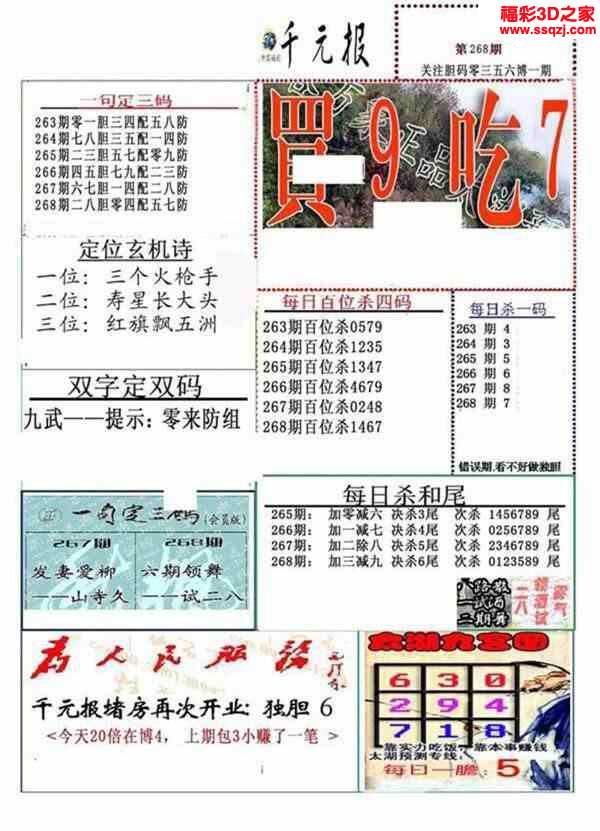 福彩3D之家
www.ssqzj.com
千元报
第268期
关注胆码零三五六博一期
一句定三码
263期零一胆三四配五八防
264期七八胆三五配一四防
265期二三胆五七配零九防
266期四五胆七九配二三防
267期六七胆一四配二八防
268期二八胆零四配五七防
買9吃7
定位玄机诗
一位：三个火枪手
二位：寿星长大头
三位：红旗飘五洲
每日百位杀四码
263期百位杀0579
264期百位杀1235
265期百位杀1347
266期百位杀4679
267期百位杀0248
268期百位杀1467
每日杀一码
263 期 4
264 期 3
265 期 5
266 期 6
267 期 8
268 期 7
错误期,看不好做独胆
双字定双码
九武——提示：零来防组
一句定三码(会员版)
267期 268期
发妻爱柳 六期领舞
——山寺久 ——试二八
每日杀和尾
265期： 加零减六 决杀3尾 次杀 1456789 尾
266期： 加一减七 决杀4尾 次杀 0256789 尾
267期： 加二除八 决杀5尾 次杀 2346789 尾
268期： 加三减九 决杀6尾 次杀 0123589 尾
为人民服务
千元报堵房再次开业：独胆 6
<今天20倍在博4， 上期包3小赚了一笔>
太湖九宫图
6 3 0
2 9 4
7 1 8
靠实力吃饭，靠本事赚钱
太湖预测专线：
每日一胆：5